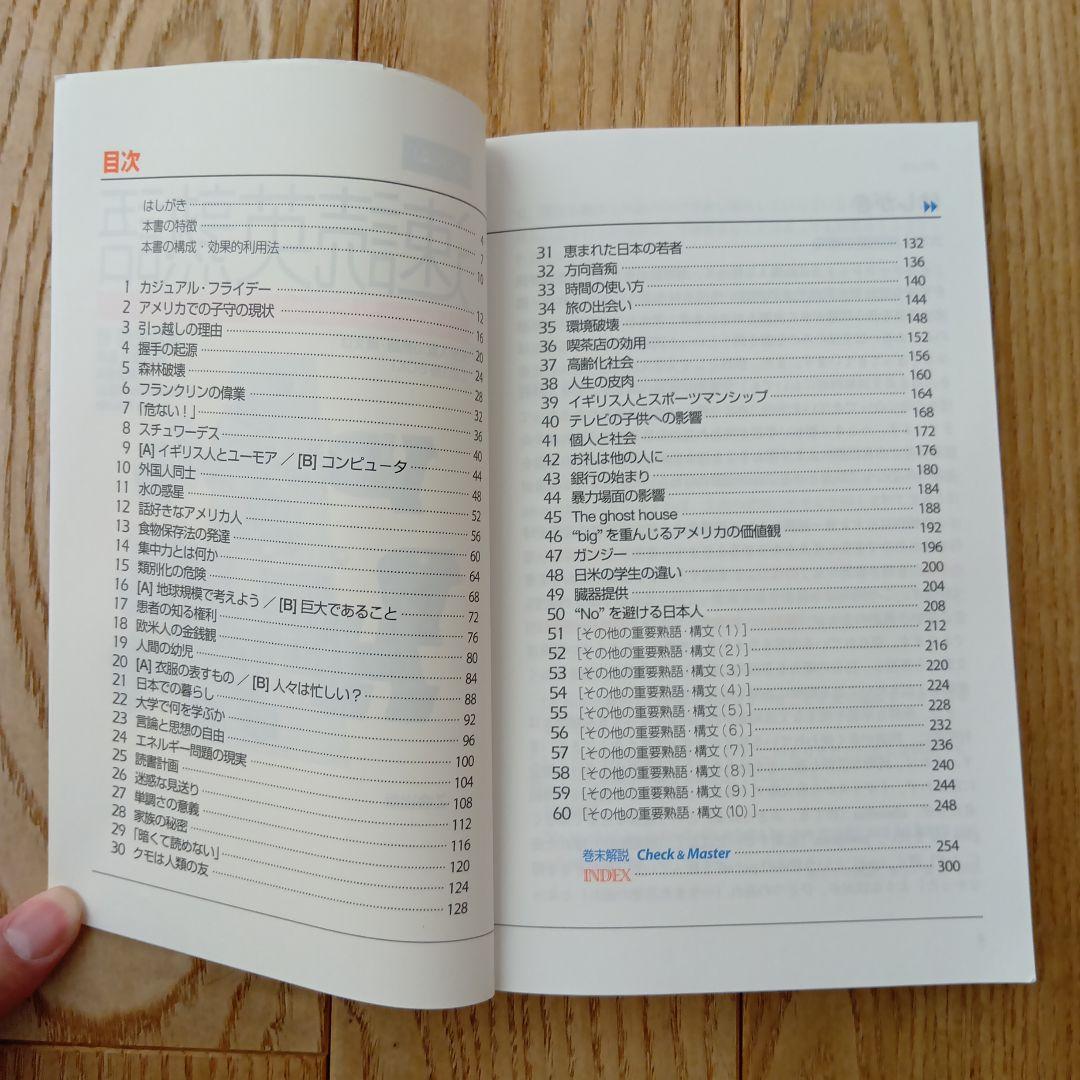 目次
はしがき 4
本書の特徴 7
本書の構成・効果的利用法 10
1 カジュアル・フライデー 12
2 アメリカでの子守の現状 16
3 引っ越しの理由 20
4 握手の起源 24
5 森林破壊 28
6 フランクリンの偉業 32
7 「危ない！」 36
8 スチュワーデス 40
9 [A] イギリス人とユーモア ／ [B] コンピュータ 44
10 外国人同士 48
11 水の惑星 52
12 話好きなアメリカ人 56
13 食物保存法の発達 60
14 集中力とは何か 64
15 類別化の危険 68
16 [A] 地球規模で考えよう ／ [B] 巨大であること 72
17 患者の知る権利 76
18 欧米人の金銭観 80
19 人間の幼児 84
20 [A] 衣服の表すもの ／ [B] 人々は忙しい？ 88
21 日本での暮らし 92
22 大学で何を学ぶか 96
23 言論と思想の自由 100
24 エネルギー問題の現実 104
25 読書計画 108
26 迷惑な見送り 112
27 単調さの意義 116
28 家族の秘密 120
29 「暗くて読めない」 124
30 クモは人類の友 128
31 恵まれた日本の若者 132
32 方向音痴 136
33 時間の使い方 140
34 旅の出会い 144
35 環境破壊 148
36 喫茶店の効用 152
37 高齢化社会 156
38 人生の皮肉 160
39 イギリス人とスポーツマンシップ 164
40 テレビの子供への影響 168
41 個人と社会 172
42 お礼は他の人に 176
43 銀行の始まり 180
44 暴力場面の影響 184
45 The ghost house 188
46 “big” を重んじるアメリカの価値観 192
47 ガンジー 196
48 日米の学生の違い 200
49 臓器提供 204
50 “No” を避ける日本人 208
51 [その他の重要熟語・構文（1）] 212
52 [その他の重要熟語・構文（2）] 216
53 [その他の重要熟語・構文（3）] 220
54 [その他の重要熟語・構文（4）] 224
55 [その他の重要熟語・構文（5）] 228
56 [その他の重要熟語・構文（6）] 232
57 [その他の重要熟語・構文（7）] 236
58 [その他の重要熟語・構文（8）] 240
59 [その他の重要熟語・構文（9）] 244
60 [その他の重要熟語・構文（10）] 248
巻末解説 Check & Master 254
INDEX 300